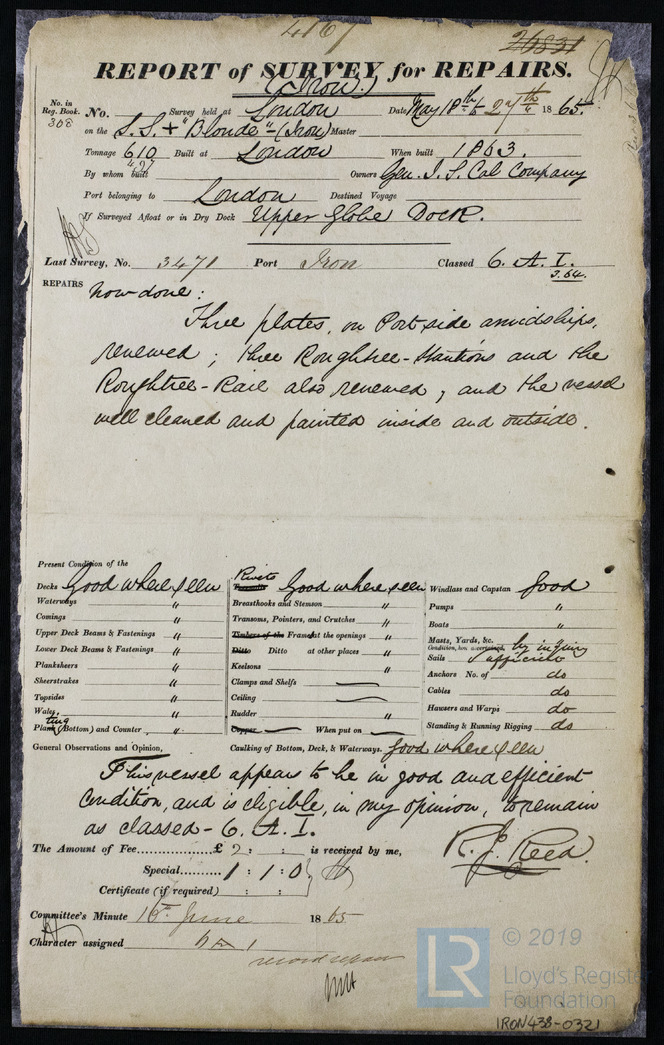 4167
26831
REPORT of SURVEY for REPAIRS.
(Iron.)
No. in Reg. Book. No. Survey held at London Date, May 18th to 27th 1865.
308 on the S.S. + "Blonde" - (Iron) Master
Tonnage 610 Built at London When built 1863.
427
By whom built Owners Gen. I. S. Col. Company
Port belonging to London Destined Voyage
If Surveyed Afloat or in Dry Dock Upper Globe Dock.
Last Survey, No. 3471 Port Iron Classed 6. A. I.
3.64.
REPAIRS now done:
Three plates, on Port side amidships,
renewed; three Roughtree-Stantions and the
Roughtree-Rail also renewed, and the vessel
well cleaned and painted inside and outside.
Present Condition of the
Decks Good where seen
Waterways "
Comings "
Upper Deck Beams & Fastenings "
Lower Deck Beams & Fastenings "
Planksheers "
Sheerstrakes "
Topsides "
Wales "
Plating (Bottom) and Counter "
Rivets
Treenails Good where seen
Breasthooks and Stemson "
Transoms, Pointers, and Crutches "
Timbers of the Frames at the openings "
Ditto Ditto at other places "
Keelsons "
Clamps and Shelfs —
Ceiling —
Rudder "
Copper — When put on —
Windlass and Capstan Good
Pumps "
Boats "
Masts, Yards, &c.
Condition, how ascertained, by inquiry
Sails Sufficient
Anchors No. of do
Cables do
Hawsers and Warps do
Standing & Running Rigging do
General Observations and Opinion, Caulking of Bottom, Deck, & Waterways. Good where seen
This vessel appears to be in good and efficient
Condition, and is eligible, in my opinion, to remain
as classed - 6. A. I.
The Amount of Fee............£ 2 : : is received by me,
R. J. Reed.
Special......... 1 : 1 : 0
Certificate (if required) : :
Committee's Minute 16th June 1865
Character assigned 6 A 1
record repairs
LR © 2019
Lloyd's Register
Foundation
IRON438-0321